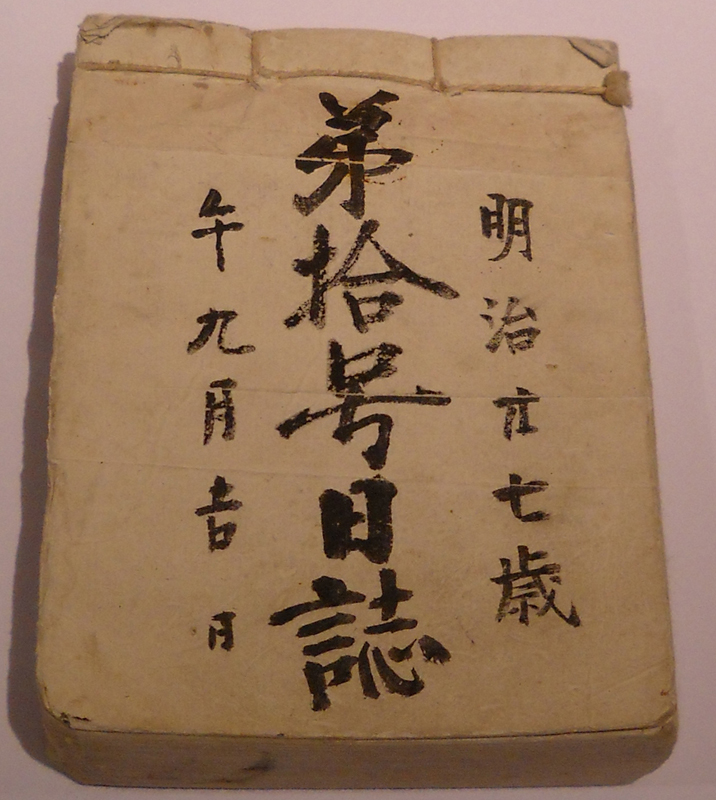 明治廿七歳
弟拾号日誌
午九月吉日